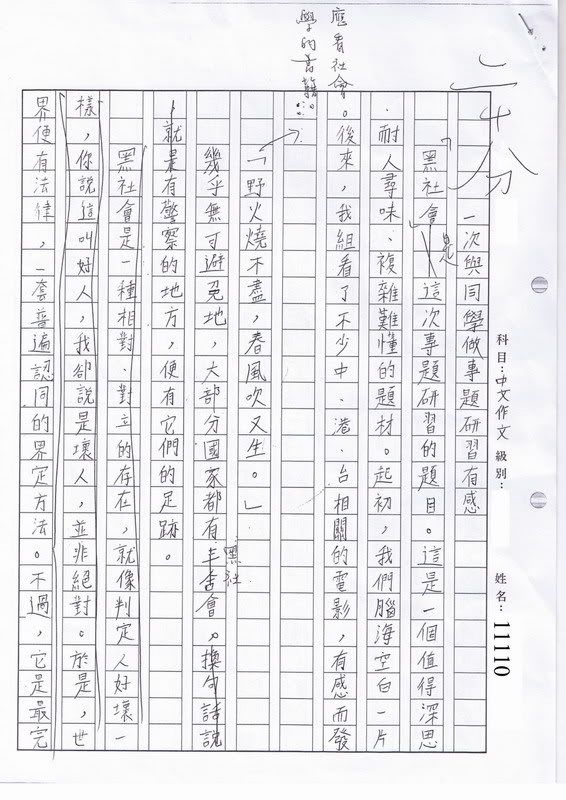 科目：中文作文 級別：
姓名：11110
二十分
一次與同學做專題研習有感
「黑社會」是這次專題研習的題目。這是一個值得深思
、耐人尋味、複雜難懂的題材。起初，我們腦海空白一片
。後來，我組看了不少中、港、台相關的電影，有感而發
應看社會
學的書籍
「野火燒不盡，春風吹又生。」
幾乎無可避免地，大部分國家都有黑社會。換句話說
，就是有警察的地方，便有它們的足跡。
黑社會是一種相對、對立的存在，就像判定人好壞一
樣，你說這叫好人，我卻說是壞人，並非絕對。於是，世
界便有法律，一套普遍認同的界定方法。不過，它是最完